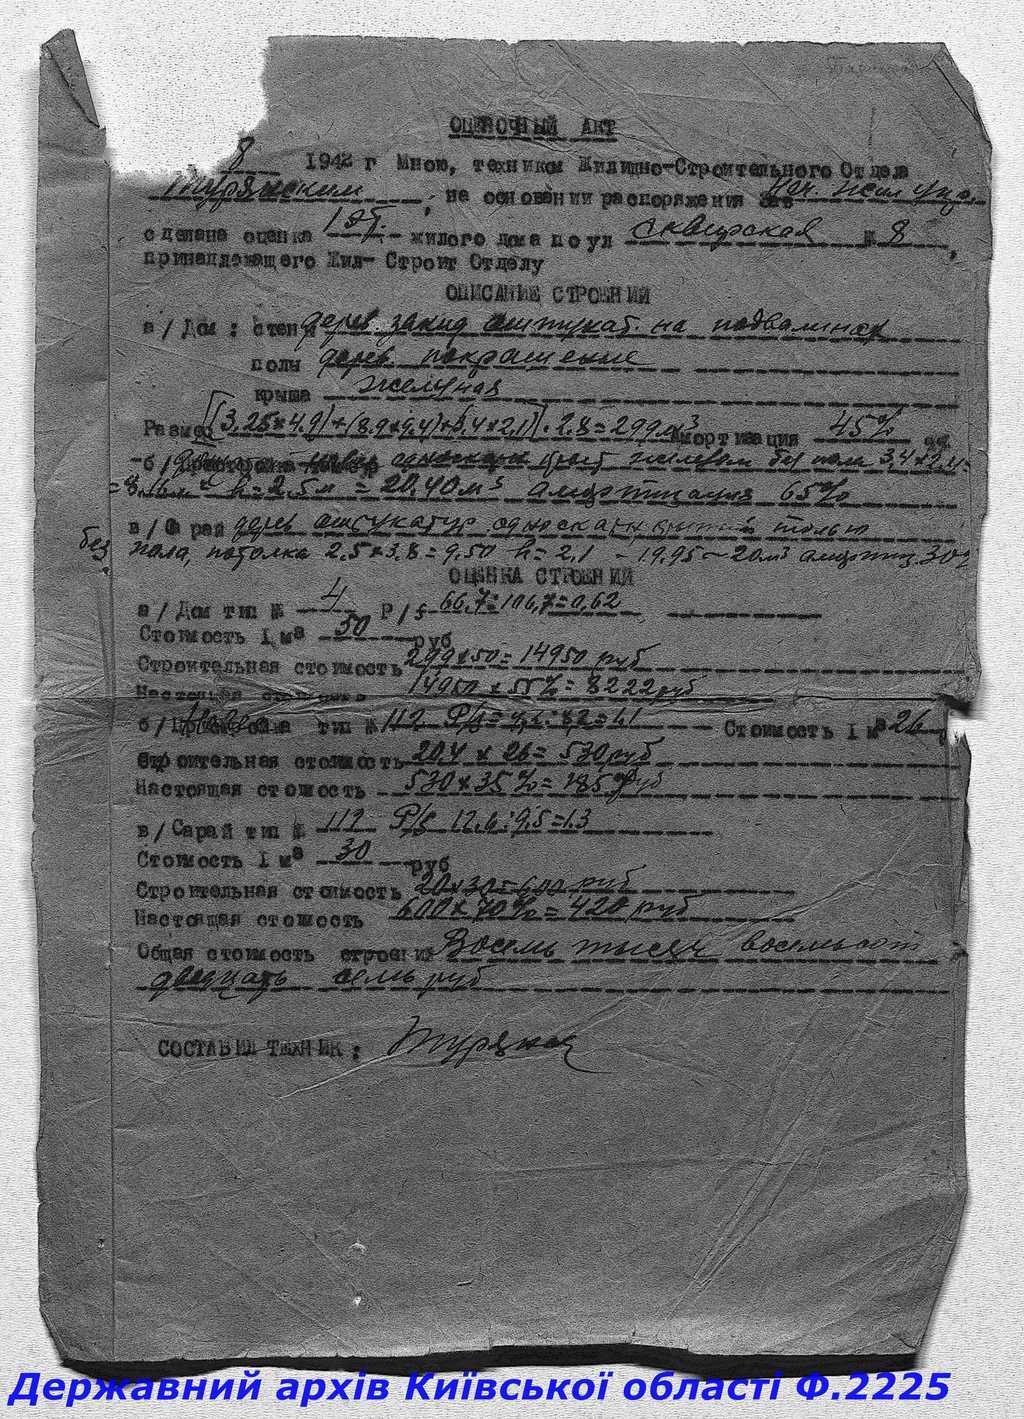 ОЦЕНОЧНЫЙ АКТ
8 1942 г Мною, техником Жилищно-Строительного Отдела
Турянским, на основании распоряжения Зав
сделана оценка 1 эт. жилого дома по ул Сквирская № 8,
принадлежащего Жил- Строит Отделу
ОПИСАНИЕ СТРОЕНИЙ
а/ Дом: стены дерев. заки оштукат. на подвалинах
полы дерев. покрашенные
крыша
Размер [(3,25×4.9)+(8.9×9,4)+(3.4×2.1)]·2.8=299м³ амортизация 45%
б/ без пола 3,4×2,4=
=8.16м² h=2.5м = 20,40м³ амортизация 65%
в/ Сарай дерев оштукатур. односкатн. толью
без пола, потолка 2.5×3.8=9.50 h=2.1 - 19.95 ~ 20м³ 30%
ОЦЕНКА СТРОЕНИЙ
а/ Дом тип № 4 Р/s 66,7:106,7=0,62
Стоимость 1 м³ 50 руб
Строительная стоимость 299×50=14950 руб
Настоящая стоимость 14950 × 55%=8222 руб
б/ тип № 112 Р/s= :8,2=1.1 Стоимость 1 м³ 26
Строительная стоимость 20.4 × 26= 530 руб
Настоящая стоимость 530×35%=185 руб
в/ Сарай тип № 112 Р/s 12.6:9.5=1.3
Стоимость 1 м³ 30 руб
Строительная стоимость 20×30=600 руб
Настоящая стоимость 600×70%=420 руб
Общая стоимость строений Восемь тысяч восемьсот
двадцать семь руб
СОСТАВИЛ ТЕХНИК:
Державний архів Київської області Ф.2225